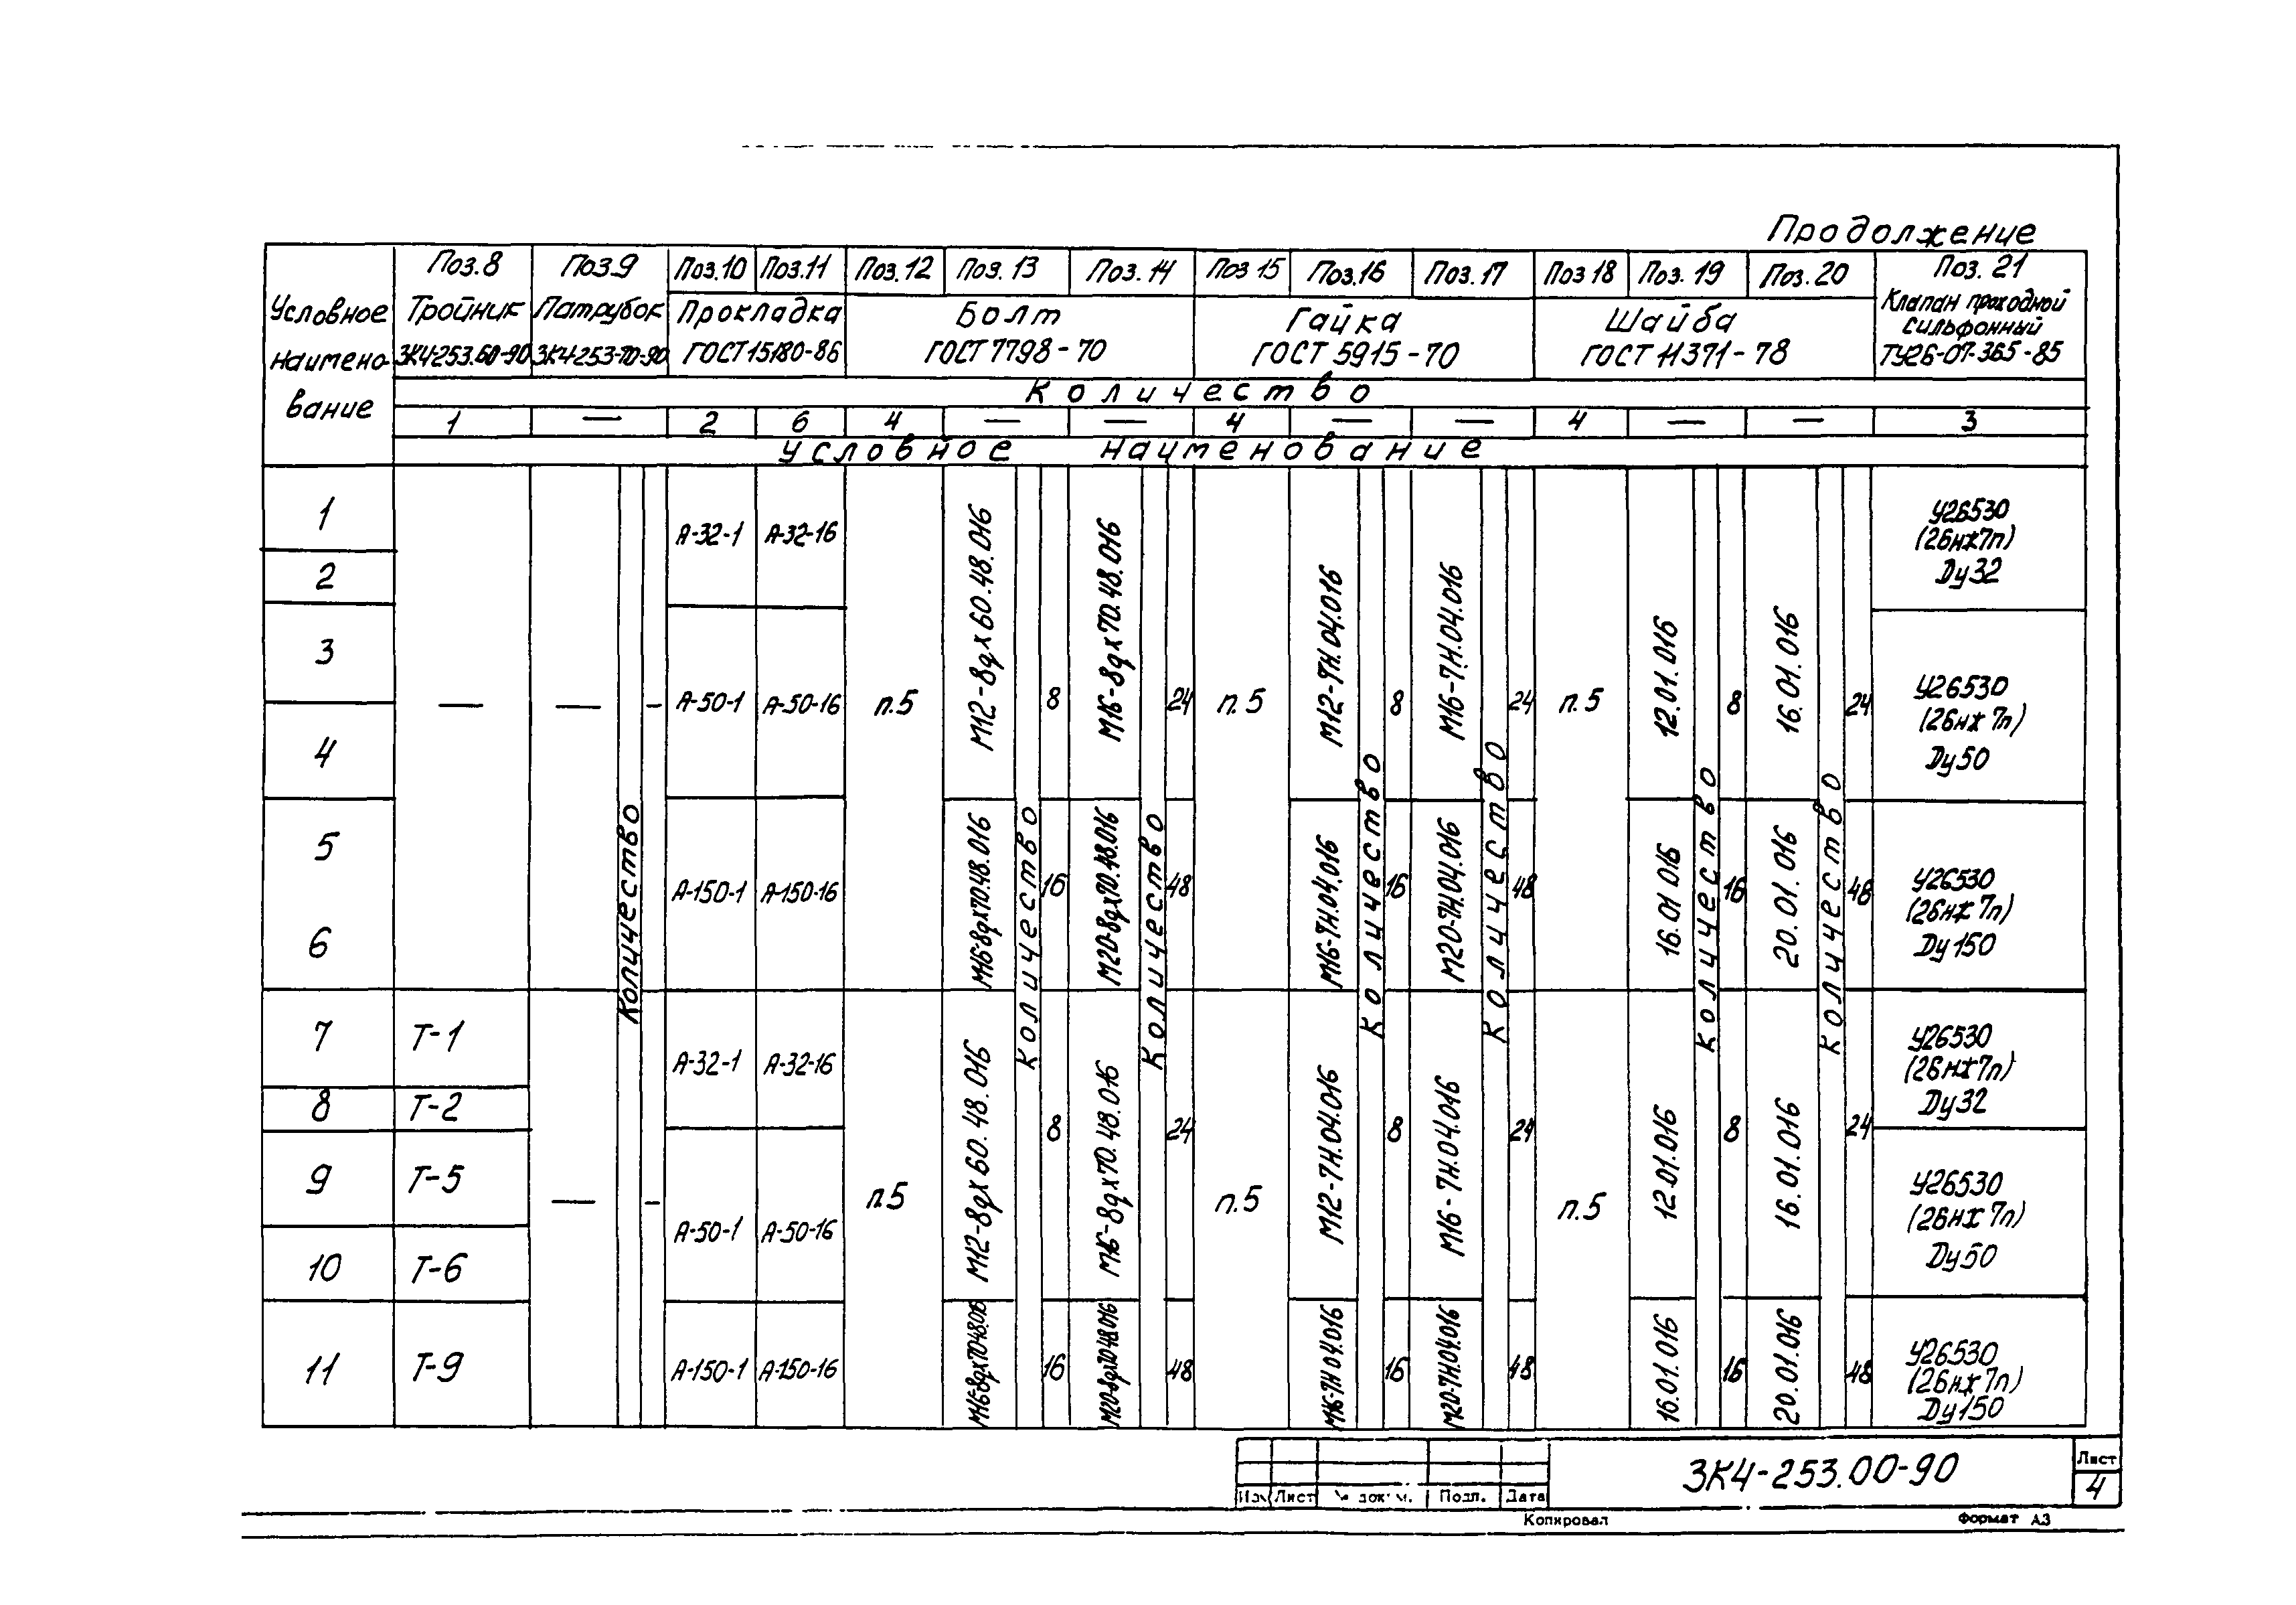 Продолжение
Условное наименование
Поз.8 Поз.9 Поз.10 Поз.11 Поз.12 Поз.13 Поз.14 Поз 15 Поз.16 Поз.17 Поз 18 Поз.19 Поз.20 Поз.21
Тройник ЗК4-253.60-90
Патрубок ЗК4-253-70-90
Прокладка ГОСТ 15180-86
Болт ГОСТ 7798-70
Гайка ГОСТ 5915-70
Шайба ГОСТ 11371-78
Клапан проходной сильфонный ТУ26-07-365-85
Количество
1 — 2 6 4 — — 4 — — 4 — — 3
Условное наименование
1
2
3
4
5
6
— — -
А-32-1 А-32-16
А-50-1 А-50-16
А-150-1 А-150-16
п.5
М12-8gх60.48.016 8
М16-8gх70.48.016 24
п.5
М12-7Н.04.016 8
М16-7Н.04.016 24
п.5
12.01.016 8
16.01.016 24
У26530
(26нж7п)
Dу32
У26530
(26нж 7п)
Dу50
М16-8gх70.48.016 16
М20-8gх70.48.016 48
М16-7Н.04.016 16
М20-7Н.04.016 48
16.01 016 16
20.01.016 48
У26530
(26нж 7п)
Dу150
Количество Количество Количество Количество Количество Количество Количество
7 Т-1
8 Т-2
9 Т-5
10 Т-6
11 Т-9
— -
А-32-1 А-32-16
А-50-1 А-50-16
А-150-1 А-150-16
п.5
М12-8gх60.48.016 8
М16-8gх70.48.016 24
п.5
М12-7Н.04.016 8
М16-7Н.04.016 24
п.5
12.01.016 8
16.01.016 24
У26530
(26нж7п)
Dу32
У26530
(26нж 7п)
Dу50
М16-8gх70.48.016 16
М20-8gх70.48.016 48
М16-7Н 04.016 16
М20-7Н.04.016 48
16.01.016 16
20.01.016 48
У26530
(26нж 7п)
Dу150
Изм Лист № докум. Подп. Дата
ЗК4-253.00-90
Лист
4
Копировал
Формат А3